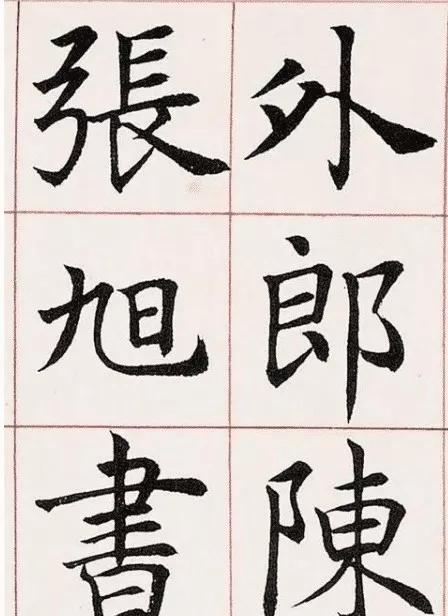 外郎陳
張旭書